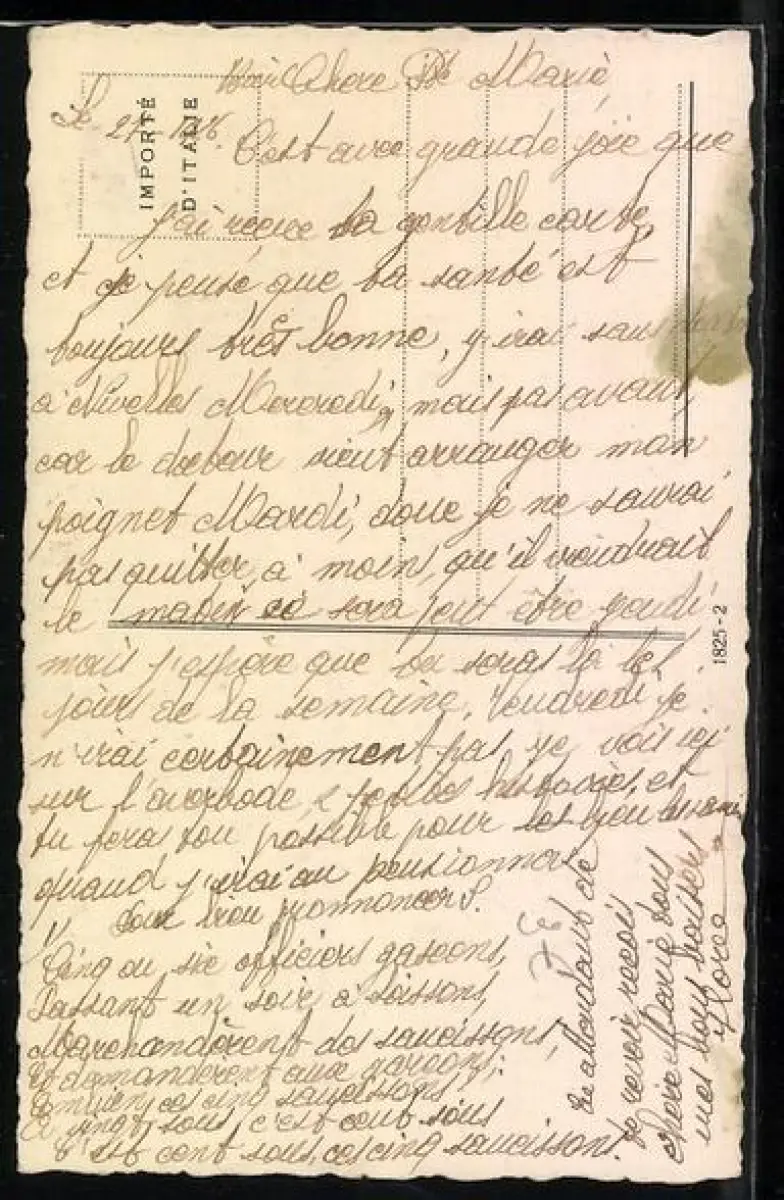 IMPORTÉ
D'ITALIE
Chère Pte Marie,
Le 27-
C'est avec grande joie que
j'ai recue ta gentille carte,
et je pense que ta santé est
toujours très bonne, y irai sans
à Nivelles Mercredi, mais pas avant
car le docteur vient arranger mon
poignet Mardi, donc je ne saurai
pas quitter, à moins, qu'il viendrait
le matin ce sera peut être jeudi
mais j'espère que tu seras là les
jours de la semaine, Vendredi je
n'irai certainement pas je vois ici
sur l'averbode, 2 petites histoires, et
tu feras ton possible pour les
quand j'irai au pensionnat
1) Pour bien prononcer S.
Cinq ou six officiers gascons,
Passant un soir à Soissons,
Marchandèrent des saucissons,
Et demandèrent aux garçons:
Combien, ces cinq saucissons,
à vingt sous, c'est cent sous
C'est cent sous, ces cinq saucissons.
En attendant de
te revoir reçois
chère Marie tous
mes bons baisers
1825-2